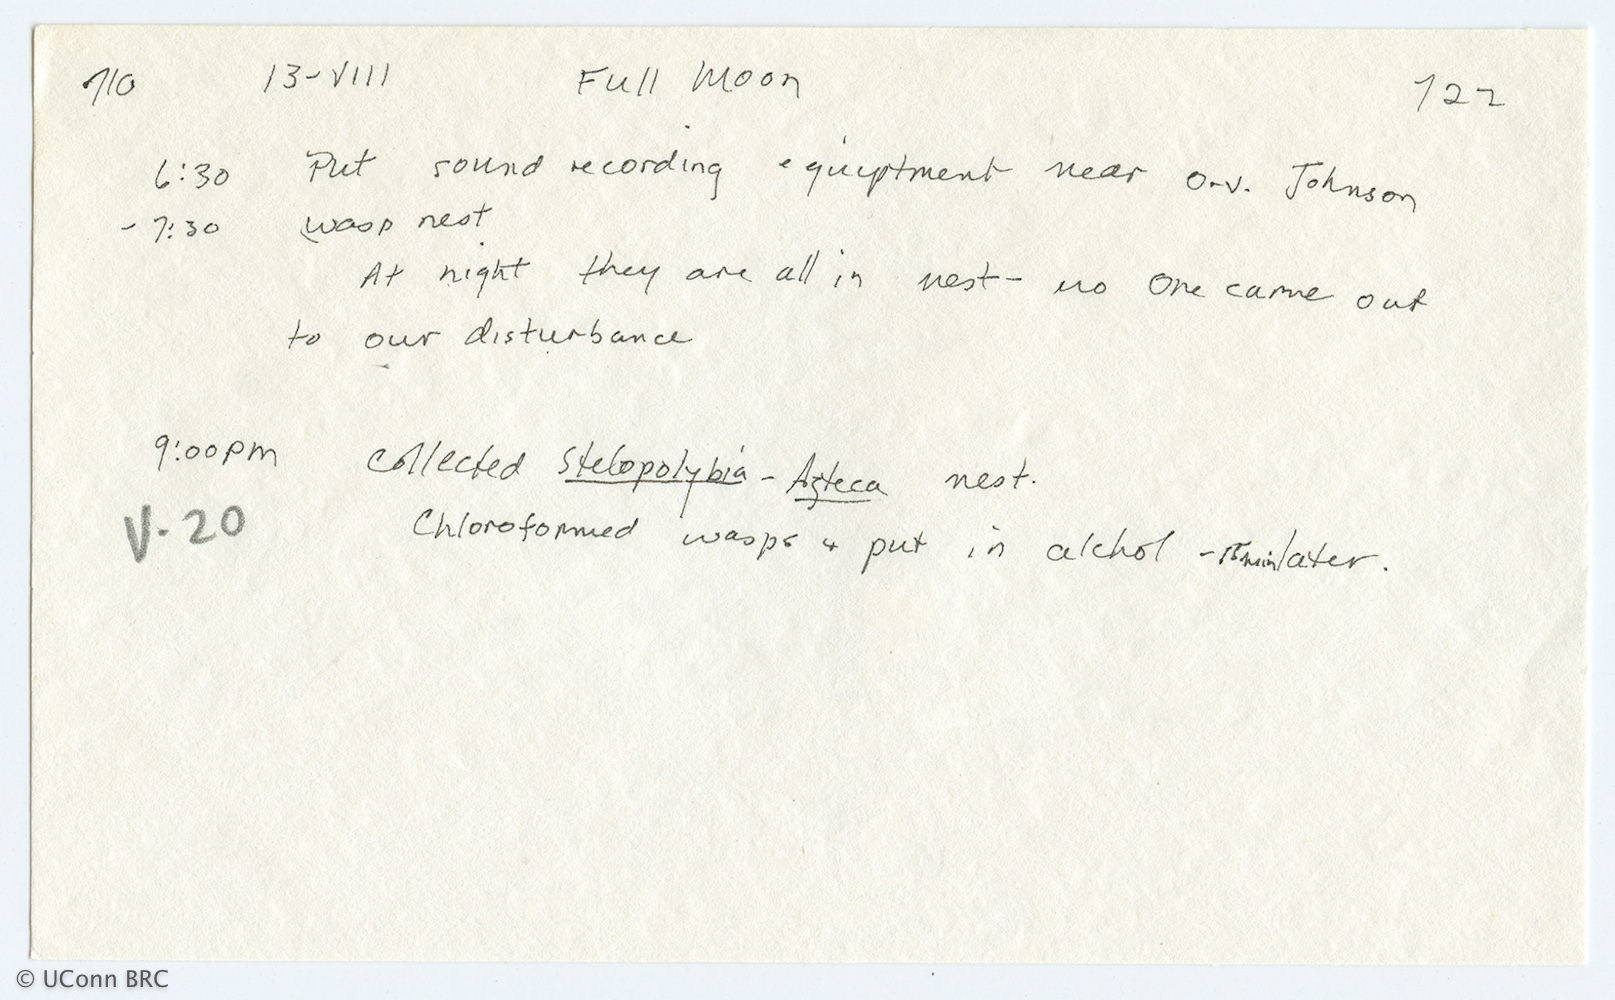 710 13-VIII Full Moon 722
6:30 Put sound recording equiptment near O.V. Johnson
- 7:30 wasp nest
At night they are all in nest - no one came out
to our disturbance
9:00pm Collected Stelopolybia - Azteca nest.
V-20 Chloroformed wasps & put in alchol - 15min later.
© UConn BRC